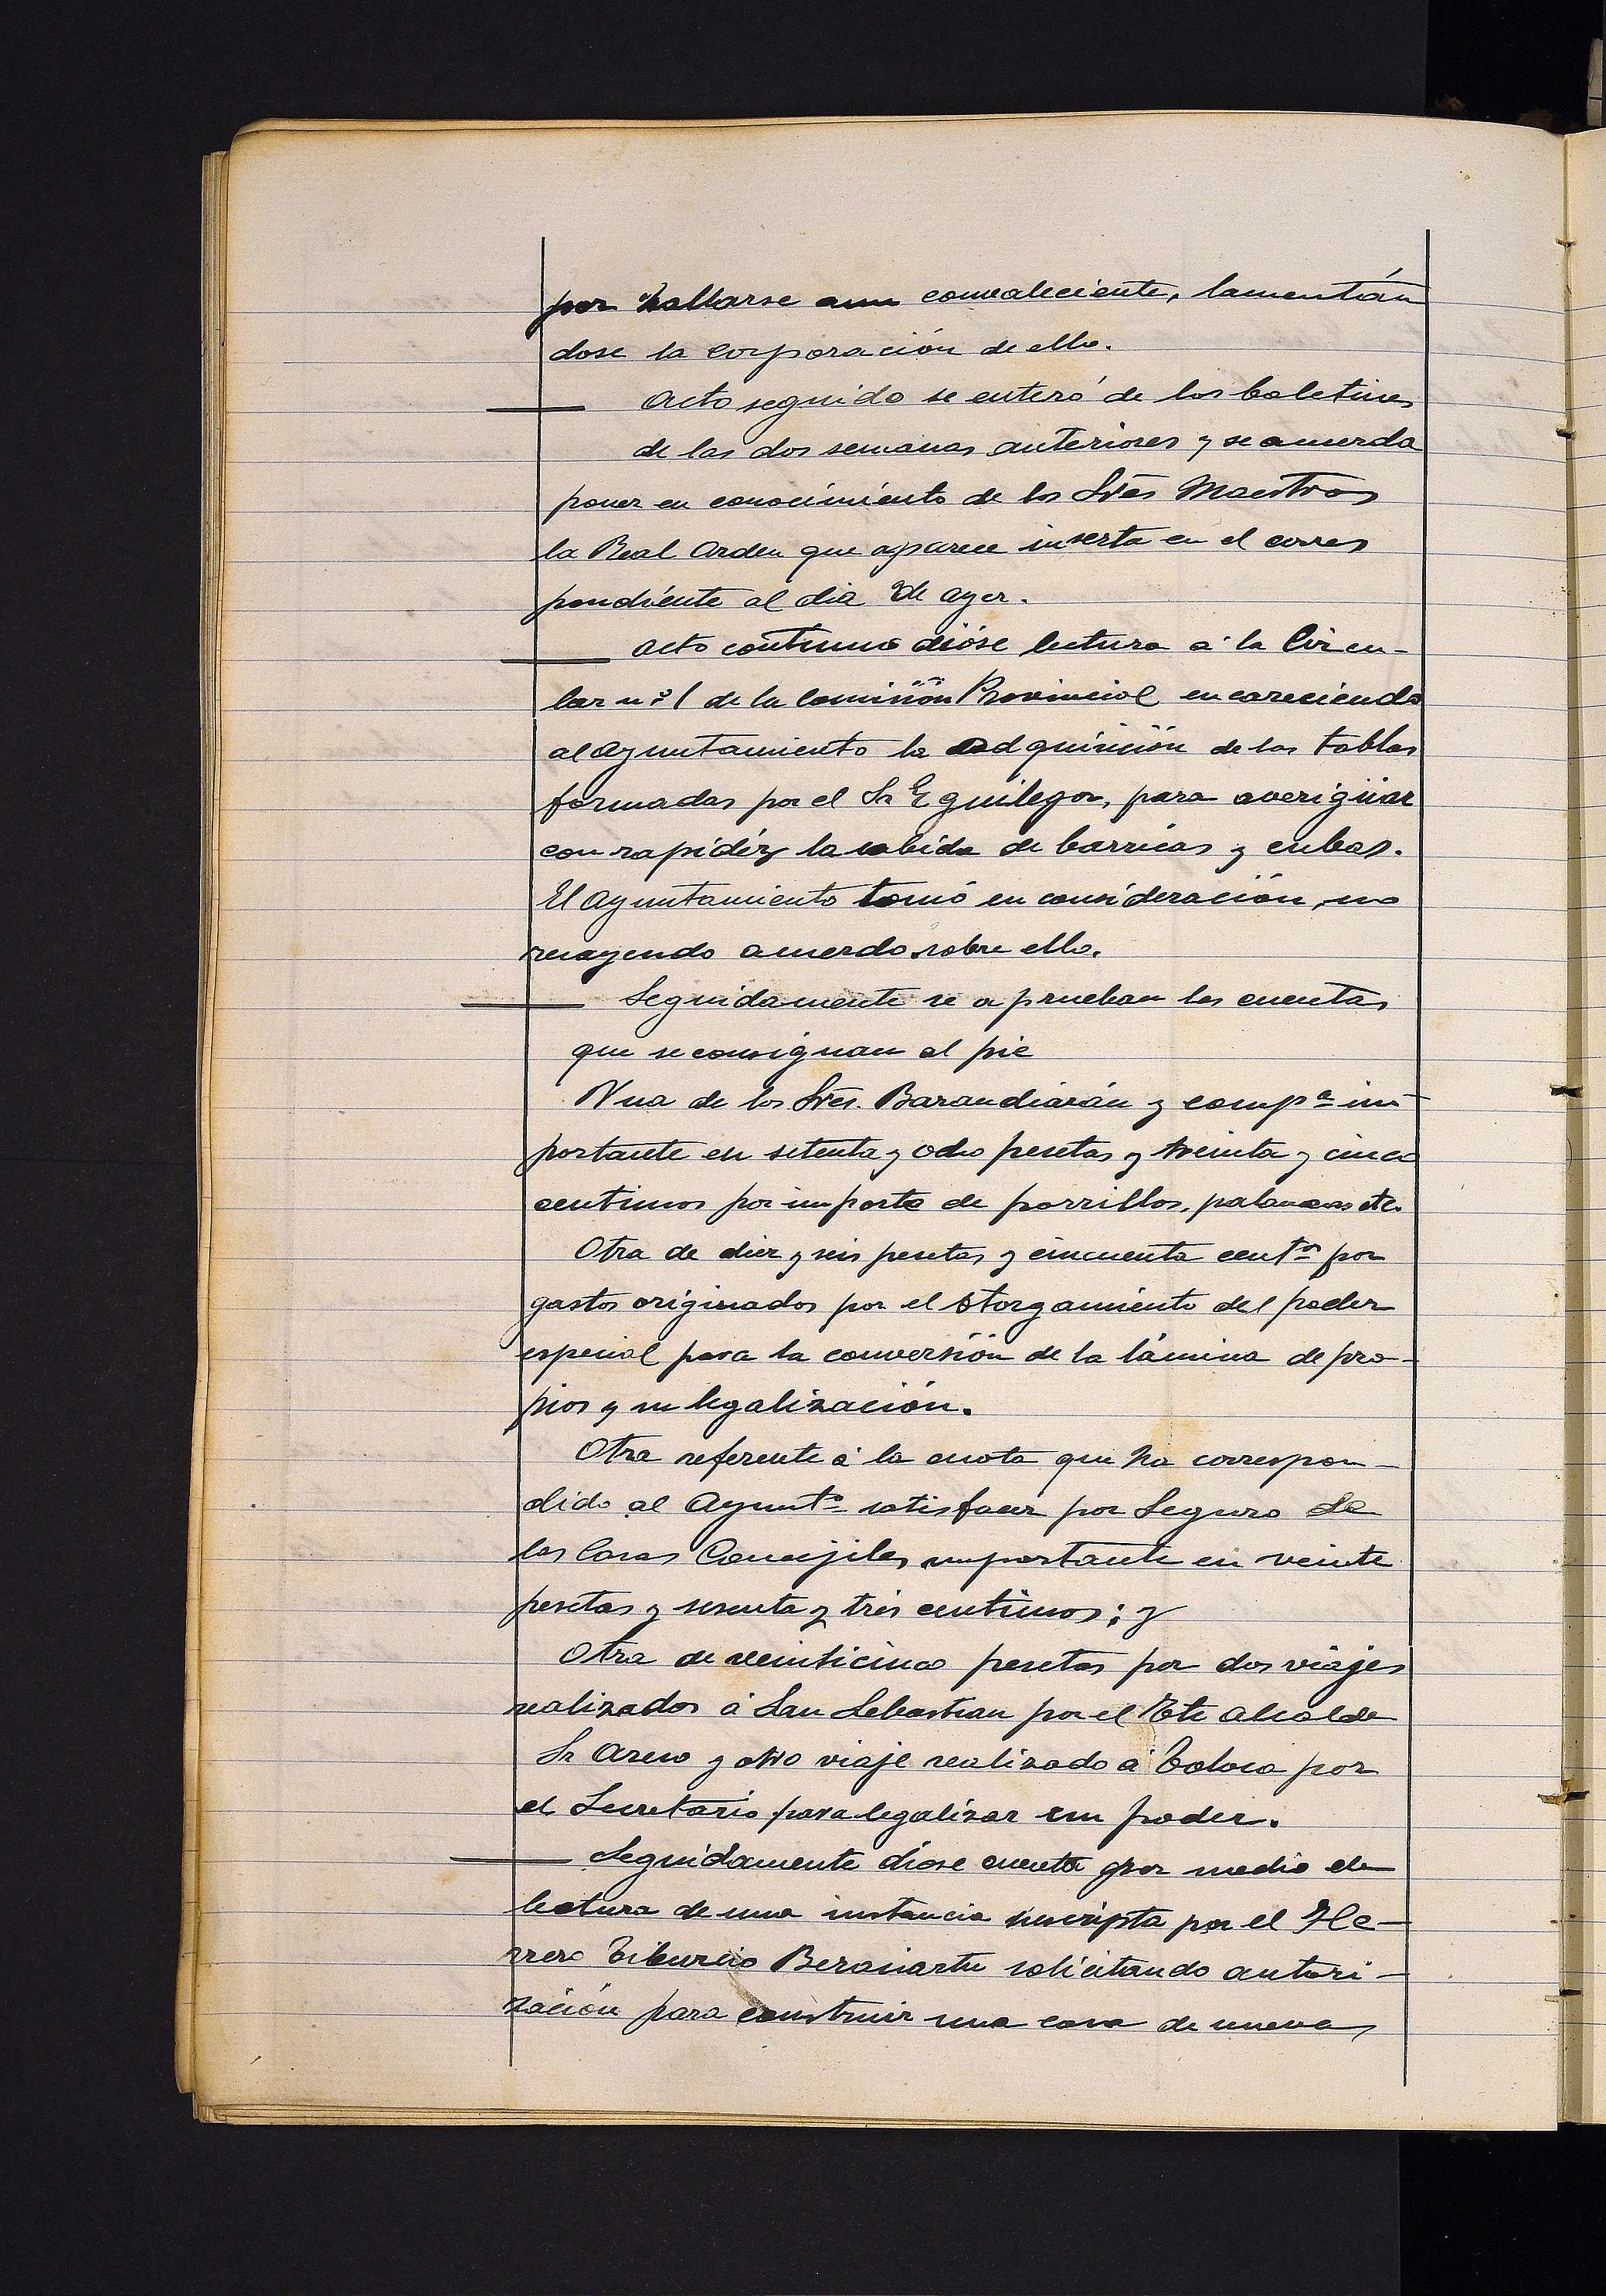 por hallarse aun convaleciente, lamentán
dose la Corporación de ello.
Acto seguido se enteró de los boletines
de las dos semanas anteriores y se acuerda
poner en conocimiento de los Sres Maestros
la Real Orden que aparece inserta en el corres
pondiente al dia de ayer.
Acto continuo dióse lectura á la Circu-
lar nº 1 de la Comisión Provincial encareciendo
al Ayuntamiento la adquisición de las tablas
formadas por el Sr Eguilegor, para averigüar
con rapidéz la cabida de barricas y cubas.
El Ayuntamiento tomó en consideración, no
recayendo acuerdo sobre ello.
Seguidamente se aprueban las cuentas
que se consignan al pie
Una de los Sres. Barandiarán y compª im-
portante en setenta y ocho pesetas y treinta y cinco
centimos por importe de porrillos, palancas etc.
Otra de diez y seis pesetas y cincuenta centos por
gastos originados por el otorgamiento del poder
especial para la conversión de la lámina de pro-
pios y su legalización.
Otra referente á la cuota que ha correspon-
dido al Ayuntº satisfacer por Seguro de
las Casas Concejiles importante en veinte
pesetas y sesenta y tres centimos; y
Otra de veinticinco pesetas por dos viajes
realizados á San Sebastian por el Tte Alcalde
Sr Areso y otro viaje realizado á Tolosa por
el Secretario para legalizar un poder.
Seguidamente dióse cuenta por medio de
lectura de una instancia suscripta por el He-
rrero Tiburcio Berasiartu solicitando autori-
zación para construir una casa de nueva